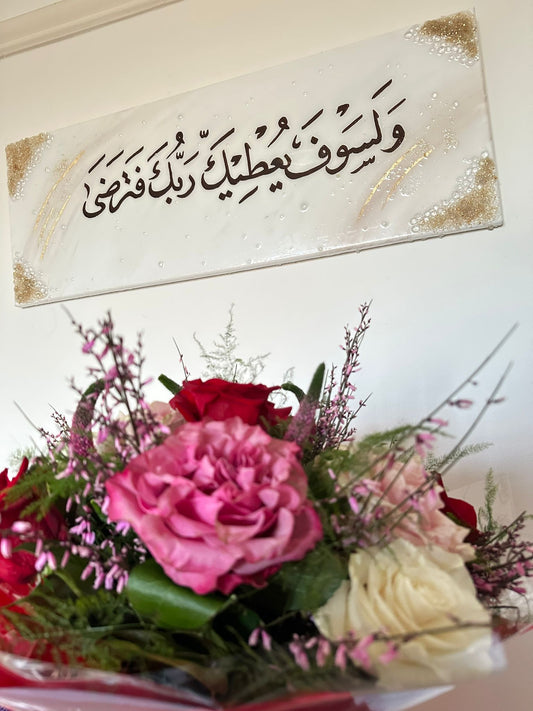 وَلَسَوْفَ يُعْطِيْكَ رَبُّكَ فَتَرَضَى